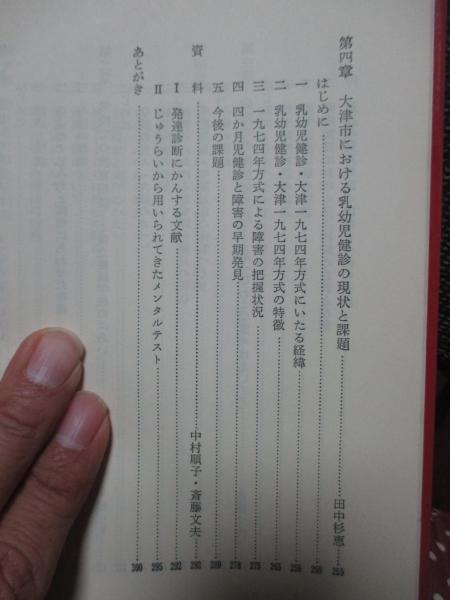 第四章 大津市における乳幼児健診の現状と課題……田中杉恵…255
はじめに……255
一 乳幼児健診・大津一九七四年方式にいたる経緯……256
二 乳幼児健診・大津一九七四年方式の特徴……265
三 一九七四年方式による障害の把握状況……275
四 四か月児健診と障害の早期発見……278
五 今後の課題……289
資料……中村順子・斎藤文夫…292
Ⅰ 発達診断にかんする文献……292
Ⅱ じゅうらいから用いられてきたメンタルテスト……295
あとがき……300